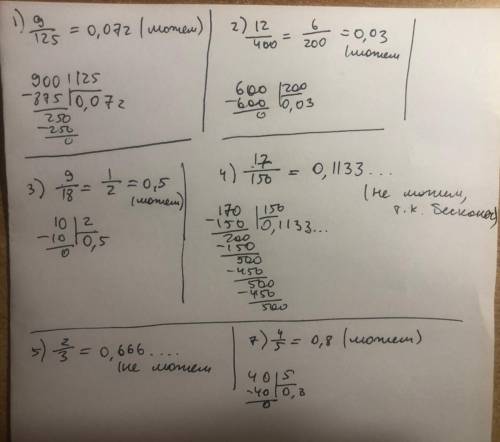 1) 9/125 = 0,072 (можем)
900 | 125
-875 | 0,072
250
-250
0
2) 12/400 = 6/200 = 0,03
(можем
600 | 200
-600 | 0,03
0
3) 9/18 = 1/2 = 0,5
(можем)
10 | 2
-10 | 0,5
0
4) 17/150 = 0,1133...
(не можем,
т.к. бесконеч)
170 | 150
-150 | 0,1133...
200
-150
500
-450
500
-450
500
5) 2/3 = 0,666....
(не можем
7) 4/5 = 0,8 (можем)
40 | 5
-40 | 0,8
0